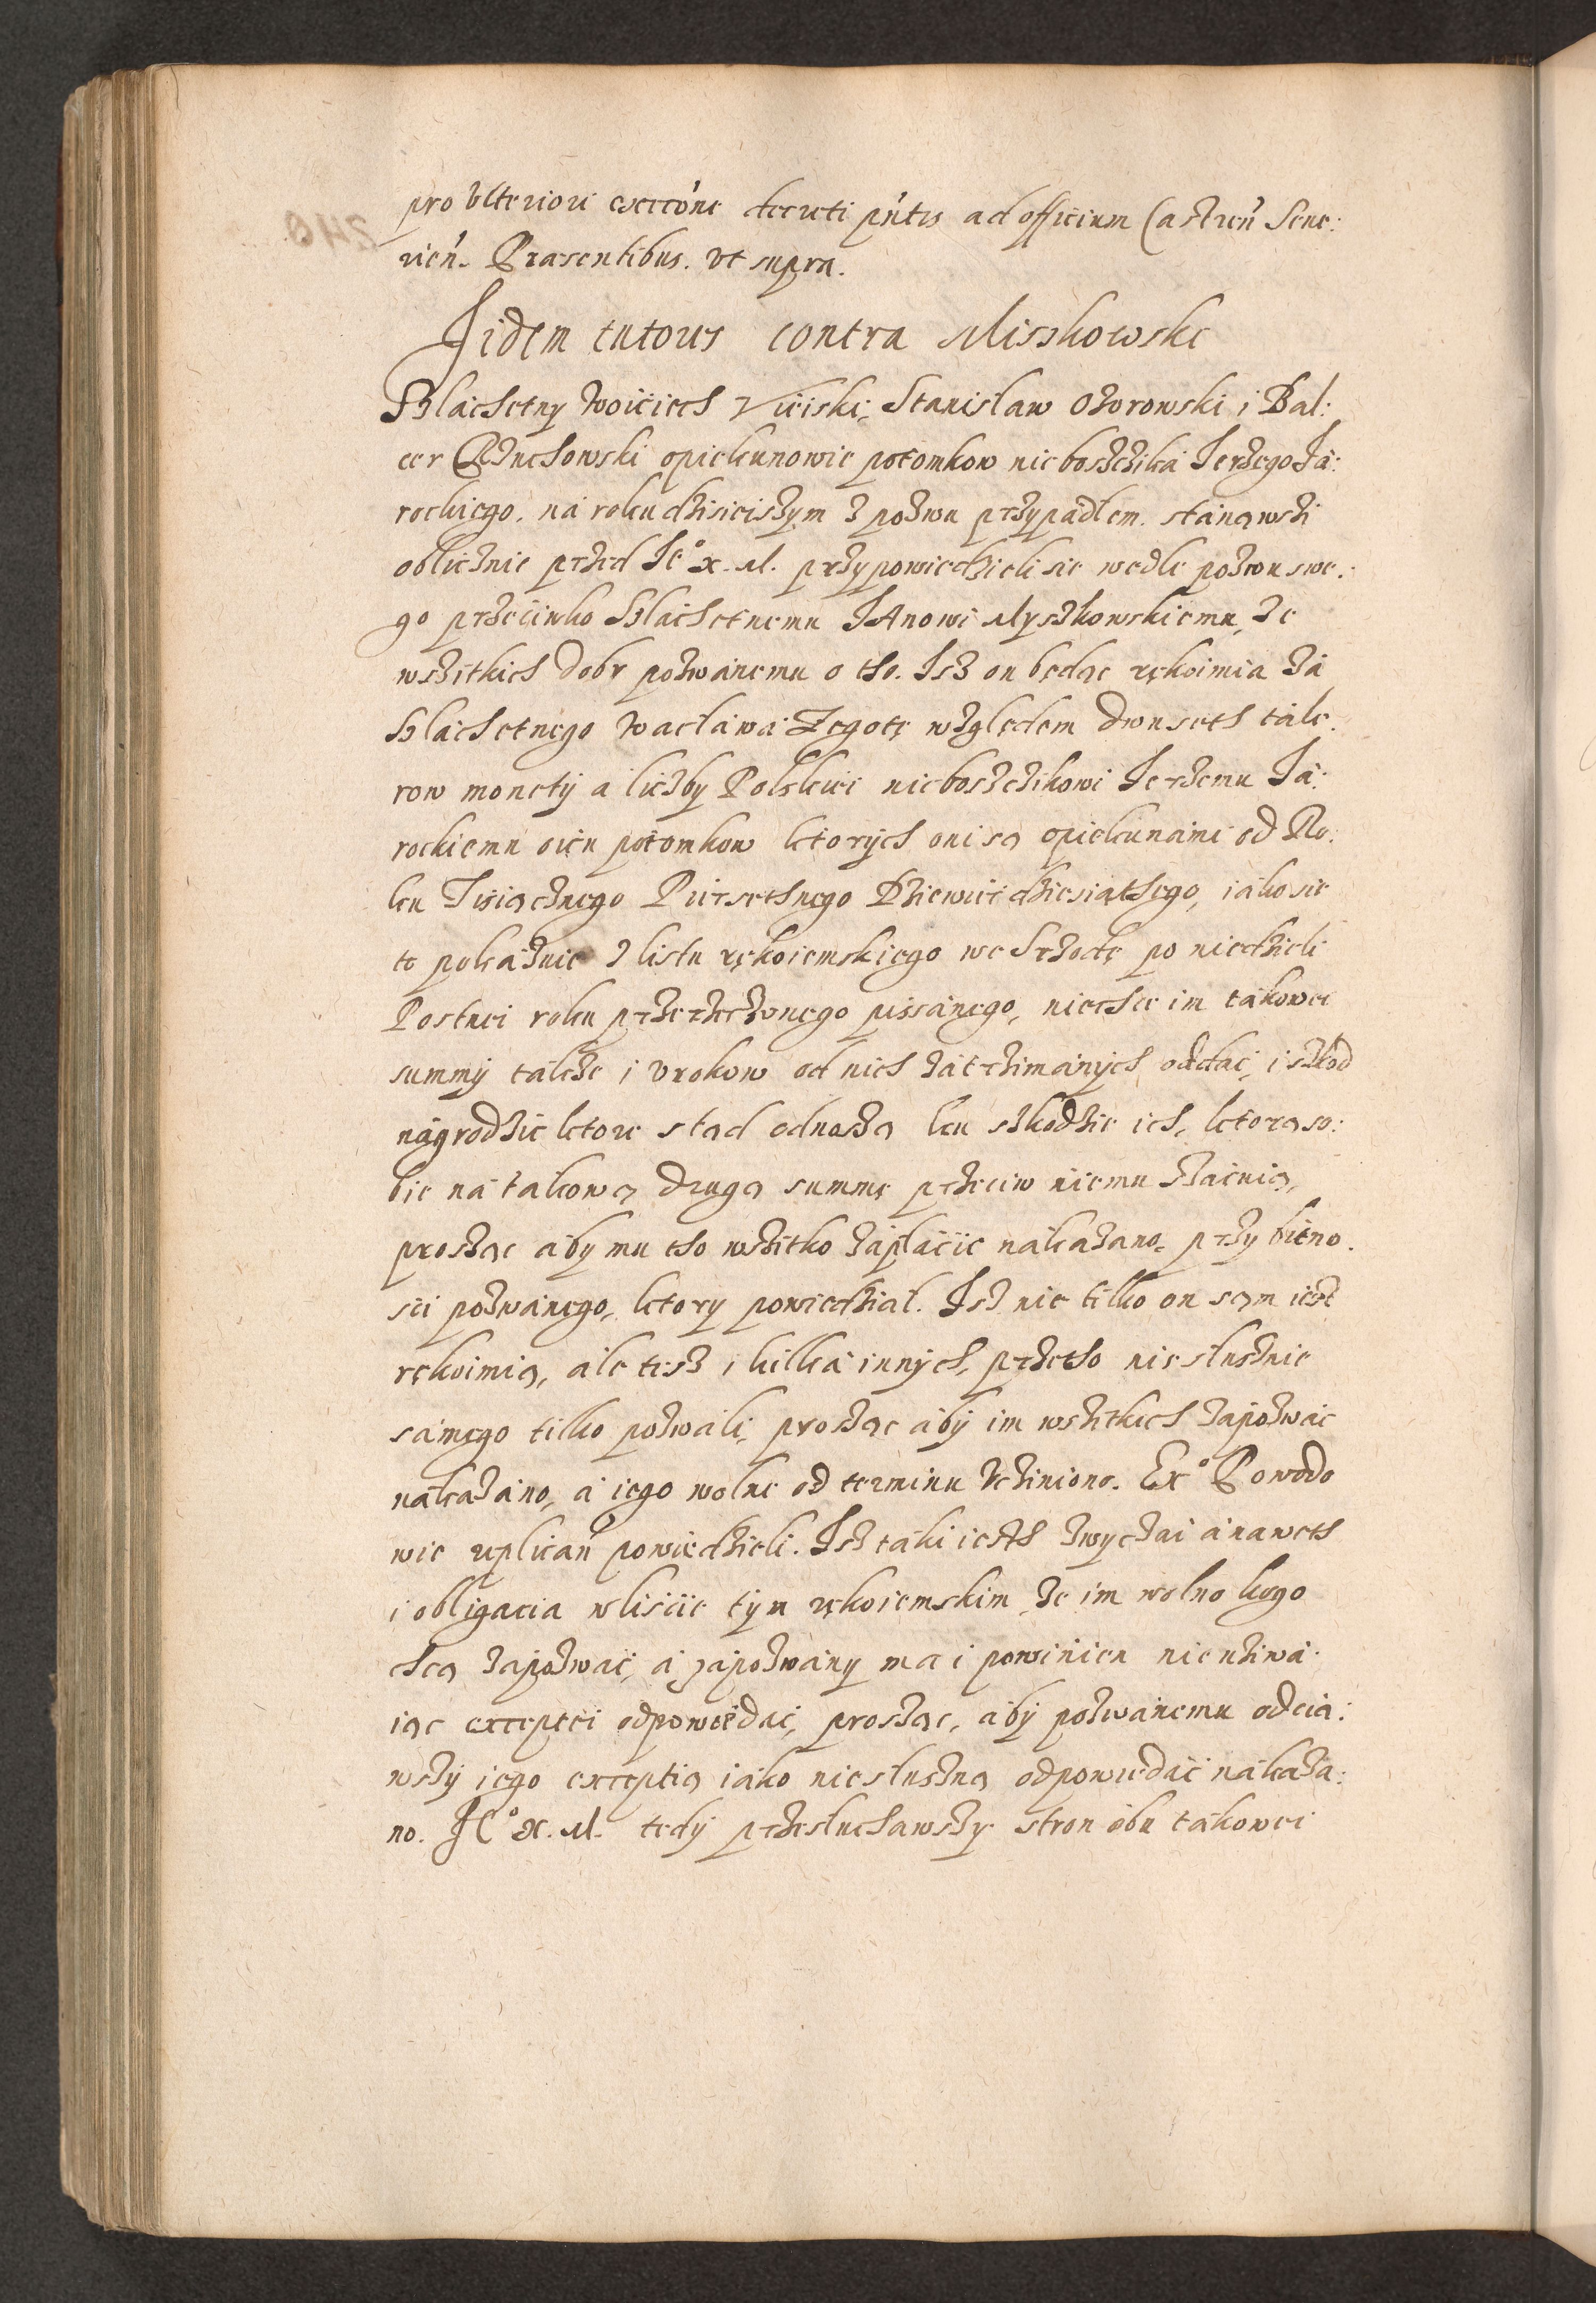 pro Vlteriori execcõne decreti pñtis ad officium Castreñ Seue:
rieñ. Præsentibus. vt supra.
Jidem tutores contra Misskowski
Szlachetny Woiciech Vieiski, Stanisław Ożorowski i Bal:
cer Rżuchowski opiekunowie potomkow nieboszczika Jerzego Ja:
rockiego. na roku dzisieiszym z pozwu przypadłem. stanąwszi
oblicznie przed Je° X. M. przypowiedzieli sie wedle pozwu swe:
go przeciwko Szlachetnemu JAnowi Myszkowskiemu, ze
wszitkich dobr pozwanemu o tho. Isz on będąc rękoimia za
Szlachetnego Wacława Zegotę względem dwuseth tale:
row monety a liczby Polskiei nieboszczikowi Jerzemu Ja:
rockiemu oicu potomkow ktorych oni są opiekunami od Ro:
ku Tisiącznego Piecsethnego Dziewiecdziesiąthego, iako sie
to pokaznie z listu rękoiemskiego we Srzodę po niedzieli
Postnei roku przerzeczonego pissanego, niechce im takowei
summy takze i vrokow od nich zatrzimanych oddac, i szkod
nagrodzic ktore stąd odnoszą ku szkodzie ich, ktorą so:
bie na takową drugą summę przeciw niemu szacuią,
prosząc aby mu tho wszitko zapłacic nakazano, przy bitno:
sci pozwanego, ktory powiedział. Isz nie tilko on sąm iest
rękoimią, ale tesz i kilka innych, przetho niesłusznie
samego tilko pozwali, prosząc aby im wszitkich zapozwac
nakazano, a iego wolne od terminu vcziniono. Ex° Powodo
wie replicañ powiedzieli. Isz taki iesth zwyczai a naweth
i obligacia w liscie tym rękoiemskim ze im wolno kogo
chcą zapozwac, a zapozwany ma i powinien nie uziwa:
iąc exceptei odpowiedac, prosząc, aby pozwanemu odcią:
wszy iego exceptią iako niesłuszną odpowiedac nakaza:
no. Je° X. M. tedy przesłuchawszy stron obu takowei